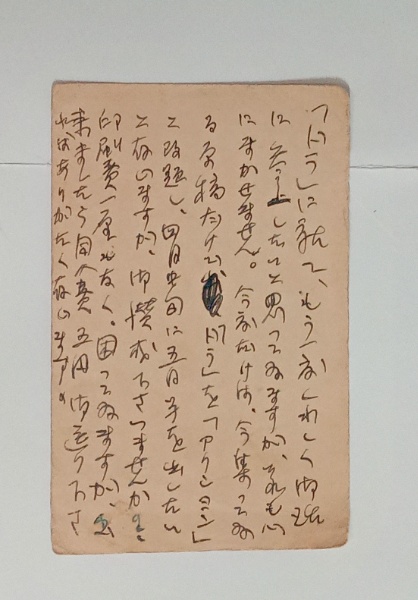 「ドラ」に就て、もう一度くわしく御話
に参上したいと思つてゐますが、それも心
にまかせません。今度だけは、今集つてゐ
る原稿だけで「ドラ」を「アクション」
と改題し、四月中旬に五月号を出したい
と存じますが、御賛成下さいませんか。
印刷費一厘もなく。困つてゐますが、出
来ましたら同人費五円御送り下さ
ればありがたく存じます。